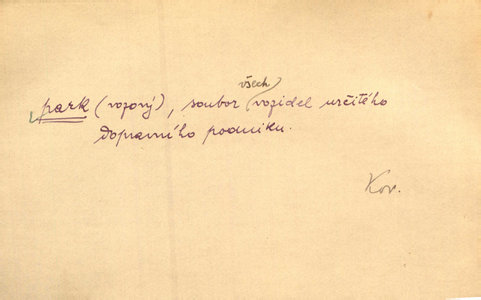 všech
park (vozový), soubor vozidel určitého
dopravního podniku.
Kov.